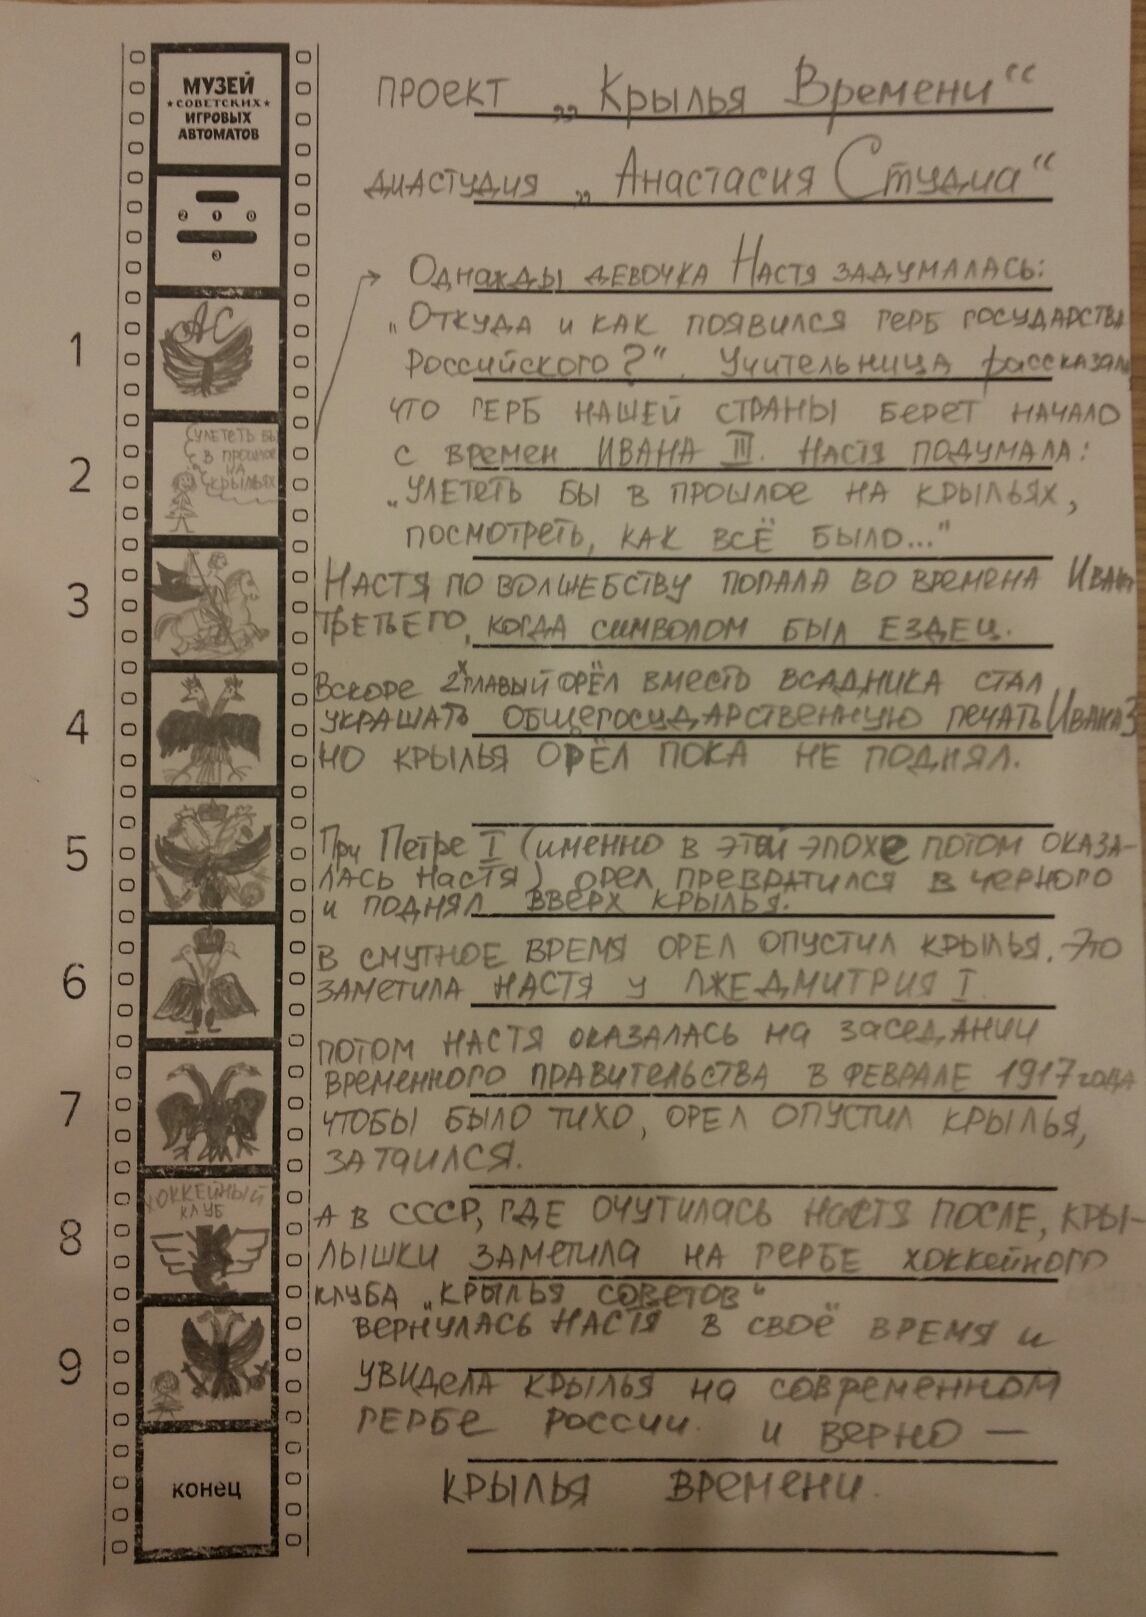 МУЗЕЙ
★СОВЕТСКИХ★
ИГРОВЫХ
АВТОМАТОВ
ПРОЕКТ „Крылья Времени“
ДИАСТУДИЯ „Анастасия Студиа“
2 1 0
3
1
АС
Однажды девочка Настя задумалась:
„Откуда и как появился герб государства
Российского?“. Учительница рассказала,
что герб нашей страны берет начало
с времен ИВАНА III. Настя подумала:
„Улететь бы в прошлое на крыльях,
посмотреть, как всё было..."
2
УЛЕТЕТЬ БЫ
В ПРОШЛОЕ
НА
КРЫЛЬЯХ
3
Настя по волшебству попала во времена Ивана
Третьего, когда символом был ездец.
4
Вскоре 2хглавый орёл вместо всадника стал
украшать общегосударственную печать Ивана 3
но крылья орёл пока не поднял.
5
При Петре I (именно в этой эпохе потом оказа-
лась Настя) орел превратился в черного
и поднял вверх крылья.
6
В смутное время орел опустил крылья. Это
заметила Настя у Лжедмитрия I.
7
потом Настя оказалась на заседании
временного правительства в феврале 1917 года
чтобы было тихо, орел опустил крылья,
затаился.
8
ХОККЕЙНЫЙ
КЛУБ
А в СССР, где очутилась Настя после, кры-
лышки заметила на гербе хоккейного
клуба „Крылья советов“
9
вернулась Настя в своё время и
увидела крылья на современном
гербе России. и верно —
крылья времени.
конец